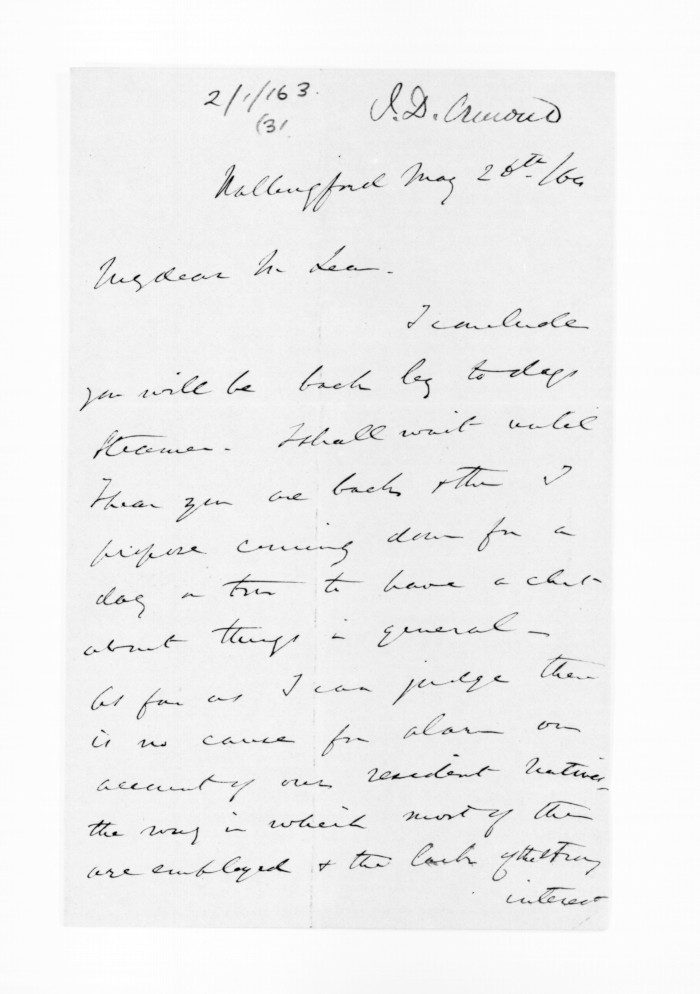 2/1/163.
(31
J. D. Ormond
Wallingford May 28th /60
My dear McLean.
I conclude
you will be back by to days
Steamer. I shall wait until
I hear you are back & then I
propose coming down for a
day or two to have a chat
about things in general —
As far as I can judge there
is no cause for alarm on
account of our resident Natives
the way in which most of them
are employed & the look of the
interest